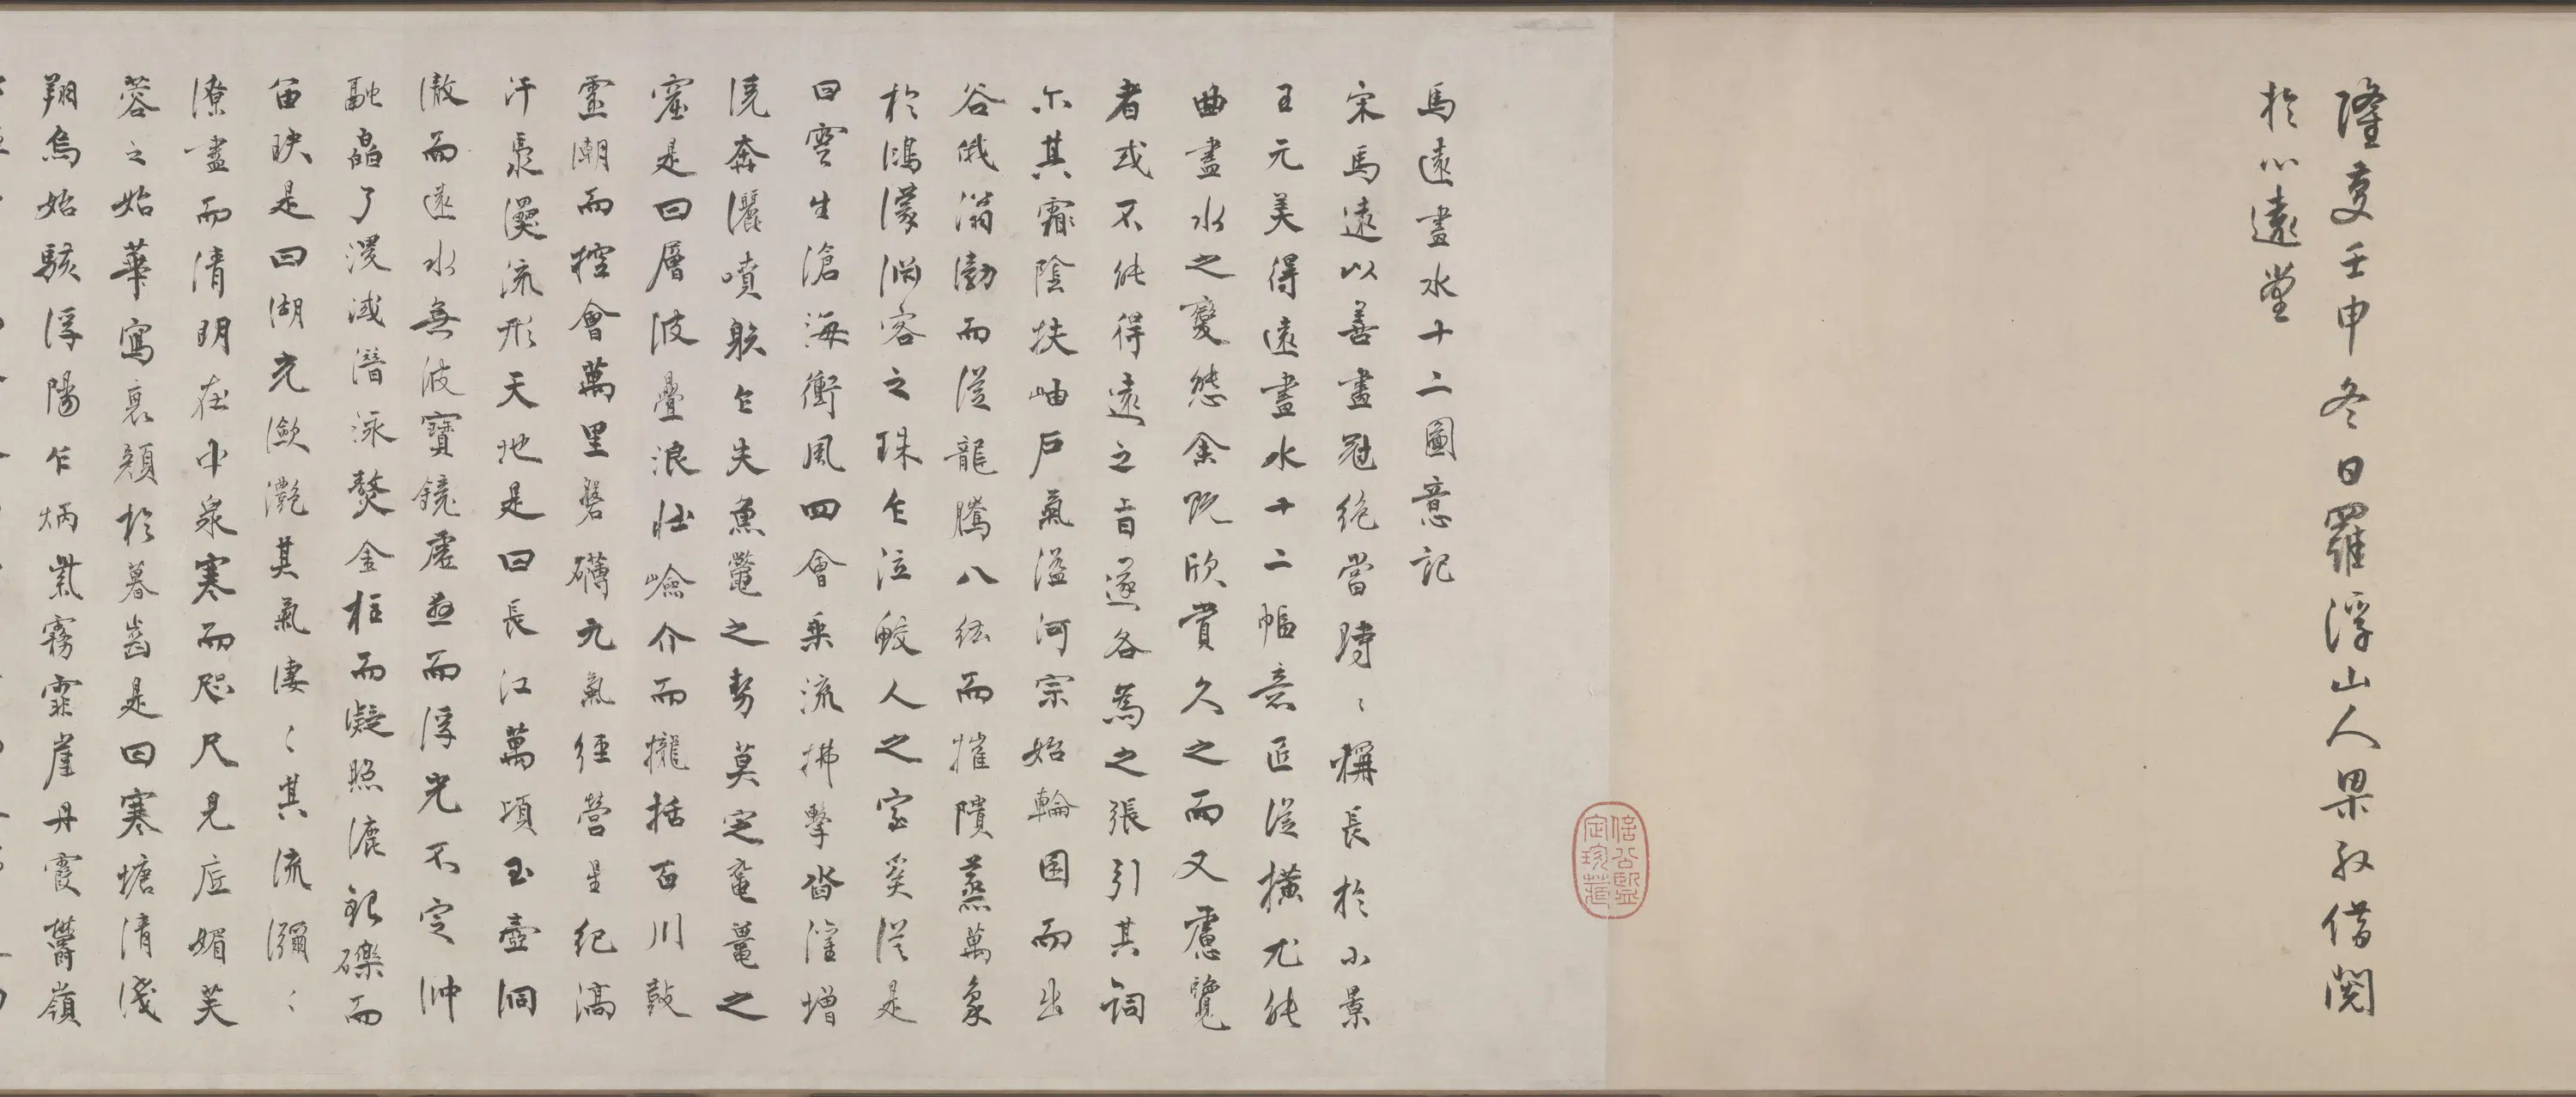 隆慶壬申冬日羅浮山人果敬借閱
於心遠堂
馬遠畫水十二圖意記
宋馬遠以善畫冠絕當時〻稱長於小景
王元美得遠畫水十二幅意匠從橫尤能
曲盡水之變態余既欣賞久之而又慮覽
者或不能得遠之旨遂各為之張引其詞
尒其霮陰扶岫戶氣溢河宗始輪囷而出
谷俄滃渤而從龍騰八紘而摧隤蒸萬象
於鴻濛淵客之珠乍泣鮫人之室奚從是
曰雲生滄海衝風四會乘流拂擊沓潅增
澆奔灑噴散乍失魚鼈之勢莫定黿鼉之
窟是曰層波疊浪壯嶮介而攏括百川鼓
靈潮而控會萬里磐礴元氣經營星紀滈
汗漫流形天地是曰長江萬頃玉壺洞
澈而遠水無波寶鏡虛而浮光不定沖
融皛了滅潛泳鰲金柱而凝照漉銀礫而
映是曰湖光瀲灧其氣淒〻其流瀰〻
潦盡而清明在中泉寒而咫尺見底媚芙
蓉之始華寫衰顏於暮齒是曰寒塘清淺
翔烏始駭浮陽乍炳紫氣霧霏崖丹霞鬱嶺
信公家定珍藏